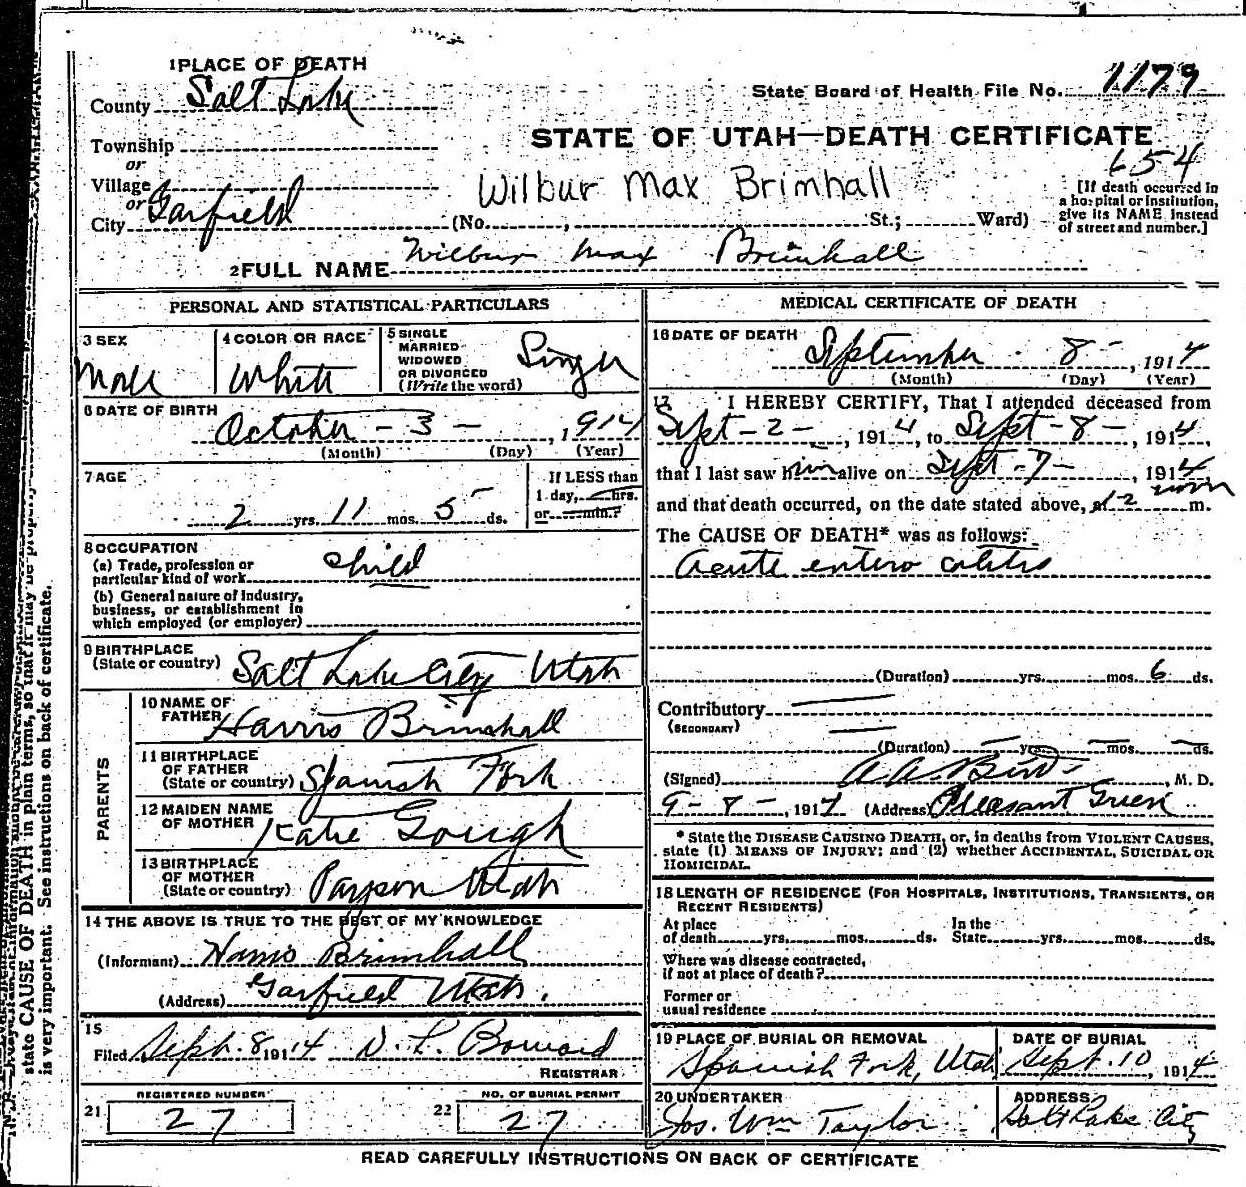 1 PLACE OF DEATH
County Salt Lake
State Board of Health File No. 1179
Township
or
Village
or
City Garfield
STATE OF UTAH—DEATH CERTIFICATE
654
Wilbur Max Brimhall
[If death occurred in a hospital or institution, give its NAME instead of street and number.]
(No. , St.; Ward)
2 FULL NAME Wilbur Max Brimhall
PERSONAL AND STATISTICAL PARTICULARS
3 SEX Male
4 COLOR OR RACE White
5 SINGLE MARRIED WIDOWED OR DIVORCED (Write the word) Single
6 DATE OF BIRTH
October - 3 - , 1914
(Month) (Day) (Year)
7 AGE
2 yrs. 11 mos. 5 ds.
If LESS than 1 day, hrs. or min.?
8 OCCUPATION
(a) Trade, profession or particular kind of work child
(b) General nature of industry, business, or establishment in which employed (or employer)
9 BIRTHPLACE
(State or country) Salt Lake City Utah
PARENTS
10 NAME OF FATHER Harris Brimhall
11 BIRTHPLACE OF FATHER (State or country) Spanish Fork
12 MAIDEN NAME OF MOTHER Katie Gough
13 BIRTHPLACE OF MOTHER (State or country) Payson Utah
14 THE ABOVE IS TRUE TO THE BEST OF MY KNOWLEDGE
(Informant) Harris Brimhall
(Address) Garfield Utah.
15
Filed Sept. 8 1914
REGISTRAR
REGISTERED NUMBER
21 27
NO. OF BURIAL PERMIT
22 27
MEDICAL CERTIFICATE OF DEATH
16 DATE OF DEATH
September 8 - , 1914
(Month) (Day) (Year)
17 I HEREBY CERTIFY, That I attended deceased from
Sept - 2 - , 1914, to Sept - 8 - , 1914,
that I last saw him alive on Sept - 7 - , 1914
and that death occurred, on the date stated above, at 12 noon m.
The CAUSE OF DEATH* was as follows:
Acute entero colitis
(Duration) yrs. mos. 6 ds.
Contributory
(SECONDARY)
(Duration) yrs. mos. ds.
(Signed) A. A. M. D.
9 - 8 - , 1914 (Address) Pleasant Green
* State the DISEASE CAUSING DEATH, or, in deaths from VIOLENT CAUSES,
state (1) MEANS OF INJURY; and (2) whether ACCIDENTAL, SUICIDAL OR
HOMICIDAL.
18 LENGTH OF RESIDENCE (FOR HOSPITALS, INSTITUTIONS, TRANSIENTS, OR
RECENT RESIDENTS)
At place of death yrs. mos. ds. In the State yrs. mos. ds.
Where was disease contracted,
if not at place of death?
Former or
usual residence
19 PLACE OF BURIAL OR REMOVAL
Spanish Fork, Utah
DATE OF BURIAL
Sept. 10, 1914
20 UNDERTAKER
Jos. Wm Taylor
ADDRESS
Salt Lake City
READ CAREFULLY INSTRUCTIONS ON BACK OF CERTIFICATE
state CAUSE OF DEATH in plain terms, so that it may be properly
is very important. See instructions on back of certificate.